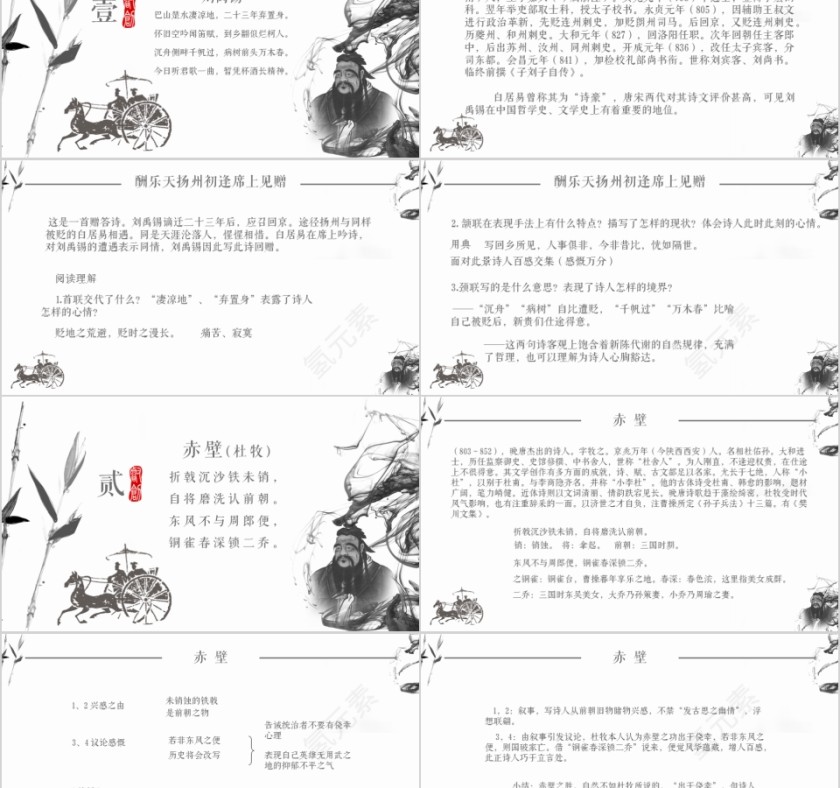 壹
巴山楚水凄凉地，二十三年弃置身。
怀旧空吟闻笛赋，到乡翻似烂柯人。
沉舟侧畔千帆过，病树前头万木春。
今日听君歌一曲，暂凭杯酒长精神。
科。翌年举吏部取士科，授太子校书。永贞元年（805），因辅助王叔文
进行政治革新，先贬连州刺史，加贬朗州司马。后回京，又贬连州刺史。
历夔州、和州刺史。大和元年（827），回洛阳任职。次年回朝任主客郎
中，后出苏州、汝州、同州刺史。开成元年（836），改任太子宾客，分
司东都。会昌元年（841），加检校礼部尚书衔。世称刘宾客、刘尚书。
临终前撰《子刘子自传》。
白居易曾称其为“诗豪”，唐宋两代对其诗文评价甚高，可见刘
禹锡在中国哲学史、文学史上有着重要的地位。
酬乐天扬州初逢席上见赠
这是一首赠答诗。刘禹锡谪迁二十三年后，应召回京。途径扬州与同样
被贬的白居易相遇。同是天涯沦落人，惺惺相惜。白居易在席上吟诗，
对刘禹锡的遭遇表示同情，刘禹锡因此写此诗回赠。
阅读理解
1.首联交代了什么？“凄凉地”、“弃置身”表露了诗人
怎样的心情？
贬地之荒避，贬时之漫长。 痛苦、寂寞
酬乐天扬州初逢席上见赠
2.颔联在表现手法上有什么特点？描写了怎样的现状？体会诗人此时此刻的心情。
用典 写回乡所见，人事俱非，今非昔比，恍如隔世。
面对此景诗人百感交集（感慨万分）
3.颈联写的是什么意思？表现了诗人怎样的境界？
——“沉舟”“病树”自比遭贬，“千帆过”“万木春”比喻
自己被贬后，新贵们仕途得意。
——这两句诗客观上饱含着新陈代谢的自然规律，充满
了哲理，也可以理解为诗人心胸豁达。
氢元素
氢元素
贰
赤壁（杜牧）
折戟沉沙铁未销，
自将磨洗认前朝。
东风不与周郎便，
铜雀春深锁二乔。
赤 壁
（803－852），晚唐杰出的诗人。字牧之，京兆万年（今陕西西安）人。名相杜佑孙。大和进
士，历任监察御史、史馆修撰、中书舍人，世称“杜舍人”。为人刚直，不逢迎权贵，在仕途
上不很得意。其文学创作有多方面的成就，诗、赋、古文都足以名家，尤长于七绝，人称“小
杜”，以别于杜甫。与李商隐齐名，并称“小李杜”。他的古体诗受杜甫、韩愈的影响，题材
广阔，笔力峭健。近体诗则以文词清丽、情韵跌宕见长。晚唐诗歌趋于藻绘绮密，杜牧受时代
风气影响，也有注重辞采的一面。以济世之才自负，注曹操所定《孙子兵法》十三篇。有《樊
川文集》。
折戟沉沙铁未销，自将磨洗认前朝。
销：销蚀。 将：拿起。 前朝：三国时期。
东风不与周郎便，铜雀春深锁二乔。
之铜雀：铜雀台，曹操暮年享乐之地。春深：春色浓，这里指美女成群。
二乔：三国时东吴美女，大乔乃孙策妻，小乔乃周瑜之妻。
赤 壁
1、2 兴感之由
未销蚀的铁戟
是前朝之物
3、4 议论感慨
若非东风之便
历史将会改写
告诫统治者不要有侥幸
心理
表现自己英雄无用武之
地的抑郁不平之气
氢元素
赤 壁
1、2：叙事，写诗人从前朝旧物睹物兴感，不禁“发古思之幽情”，浮
想联翩。
3、4：由叙事引发议论，杜牧本人认为赤壁之功出于侥幸，若非东风之
便，则国破家亡。借“铜雀春深锁二乔”说来，便觉风华蕴藏，增人百感，
此正诗人巧于立言处。
氢元素